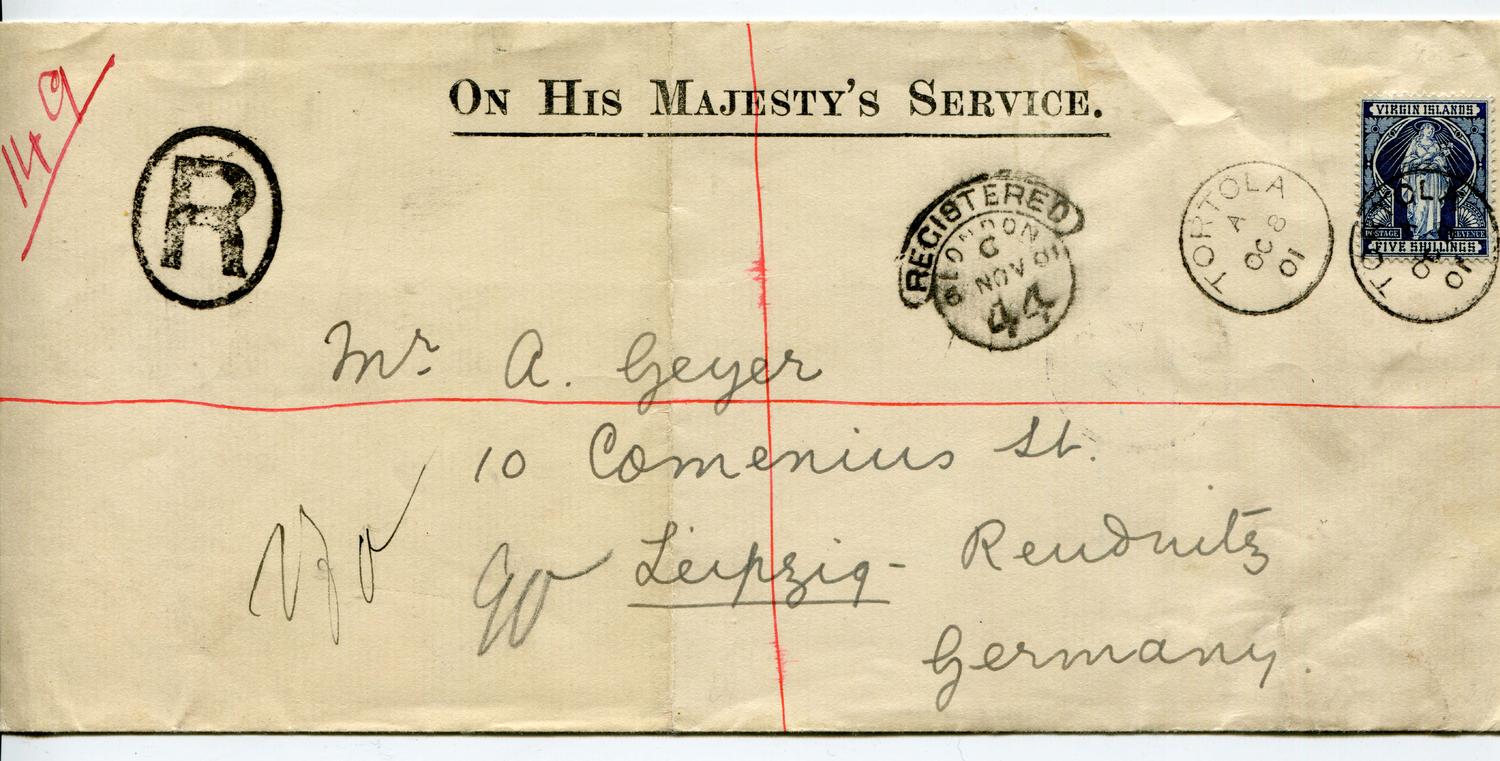 149
ON HIS MAJESTY'S SERVICE.
R
REGISTERED
LONDON
C
NOV 01
44
TORTOLA
A
OC 8
01
VIRGIN ISLANDS
POSTAGE REVENUE
FIVE SHILLINGS
TORTOLA
01
Mr A. Geyer
10 Comenius St.
Leipzig - Reudnitz
Germany.